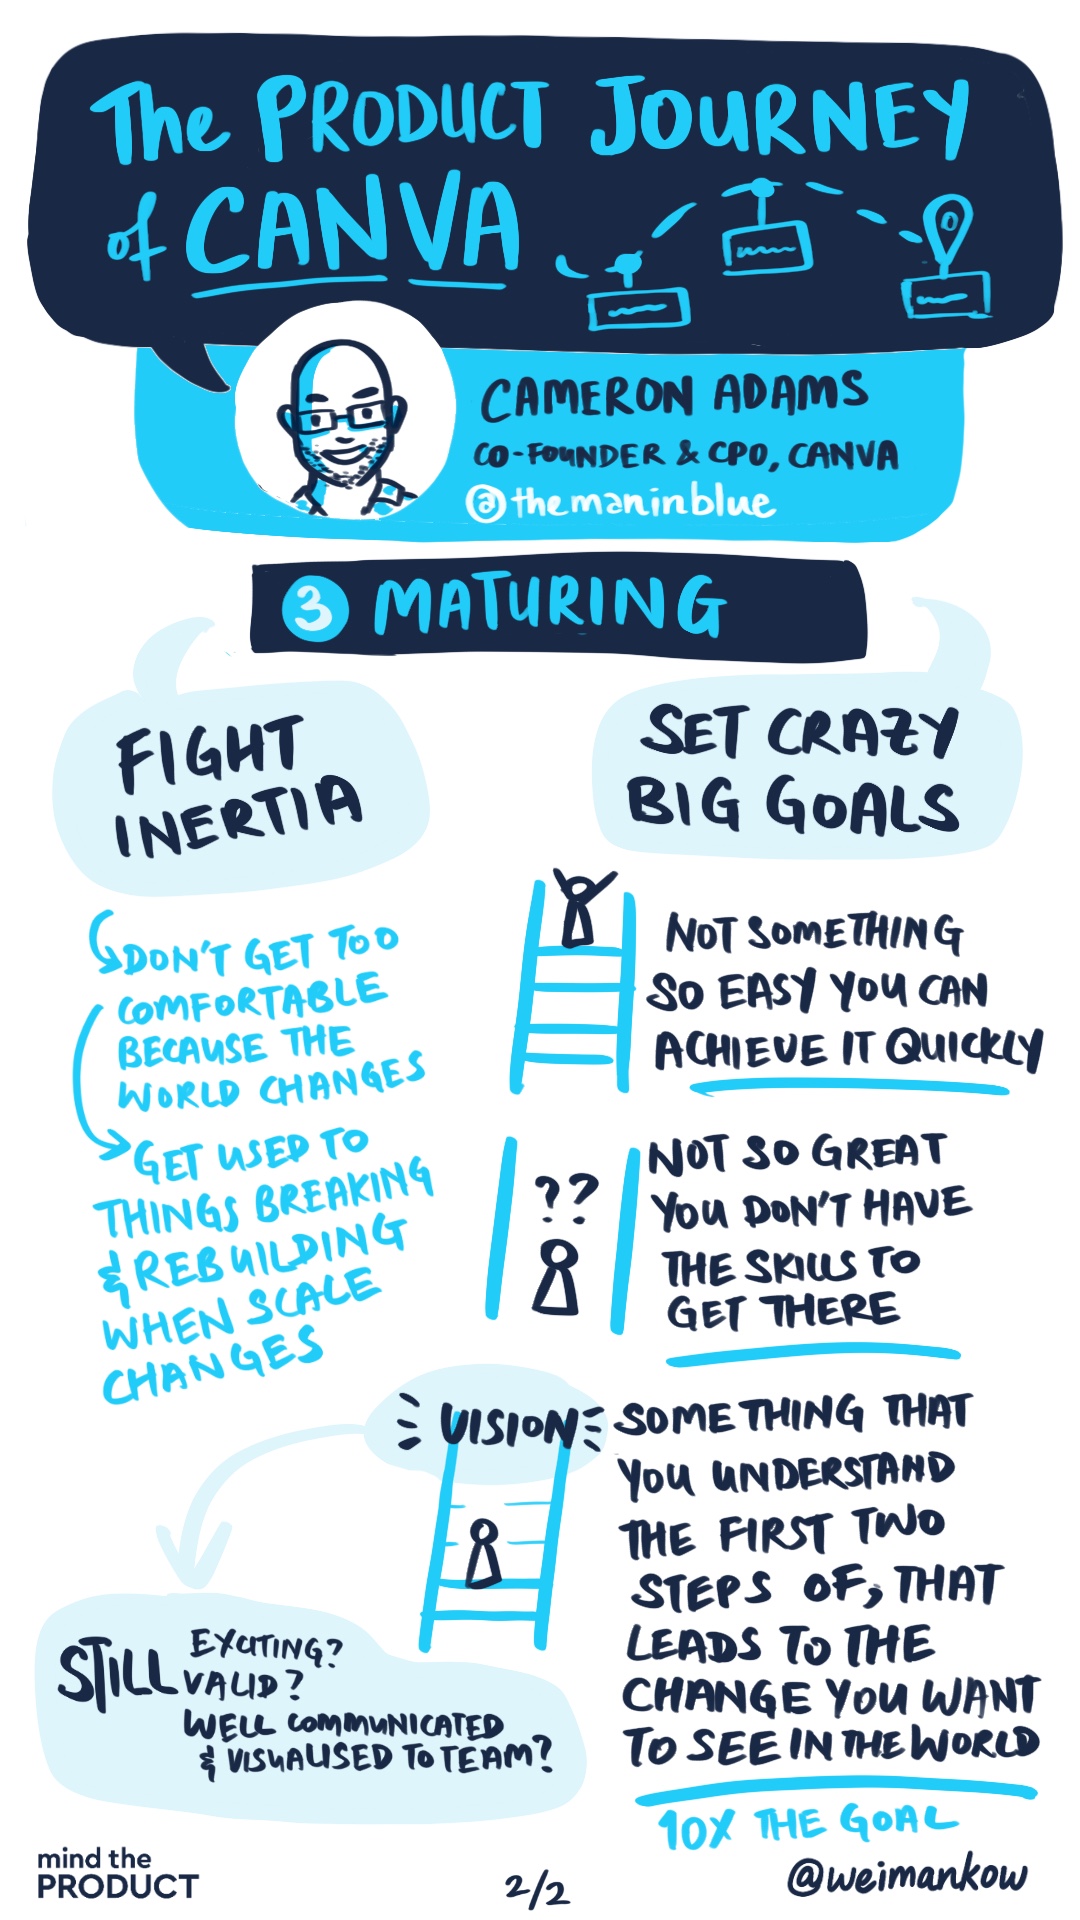 The PRODUCT JOURNEY
of CANVA
CAMERON ADAMS
CO-FOUNDER & CPO, CANVA
@themaninblue
3 MATURING
FIGHT
INERTIA
DON'T GET TOO
COMFORTABLE
BECAUSE THE
WORLD CHANGES
GET USED TO
THINGS BREAKING
& REBUILDING
WHEN SCALE
CHANGES
SET CRAZY
BIG GOALS
NOT SOMETHING
SO EASY YOU CAN
ACHIEVE IT QUICKLY
??
NOT SO GREAT
YOU DON'T HAVE
THE SKILLS TO
GET THERE
VISION
SOMETHING THAT
YOU UNDERSTAND
THE FIRST TWO
STEPS OF, THAT
LEADS TO THE
CHANGE YOU WANT
TO SEE IN THE WORLD
10X THE GOAL
STILL EXCITING?
VALID?
WELL COMMUNICATED
& VISUALISED TO TEAM?
mind the
PRODUCT
2/2
@weimankow